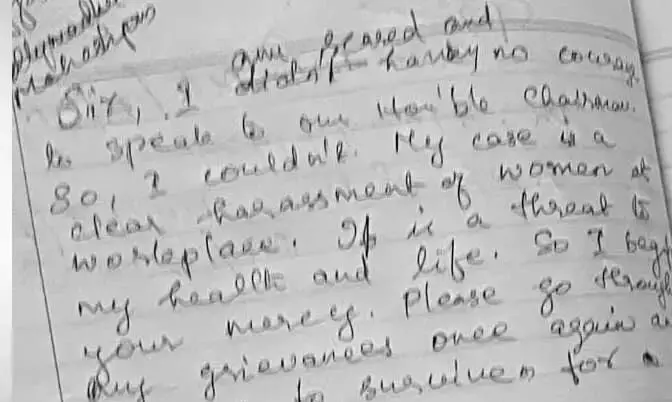 am scared and
Sir, I didn't having no courag
to speak to our Hon'ble Chairman.
So, I couldn't. My case is a
clear harassment of women at
workplace. It is a threat to
my health and life. So I beg
your mercy. Please go through
my grievances once again a
to for a